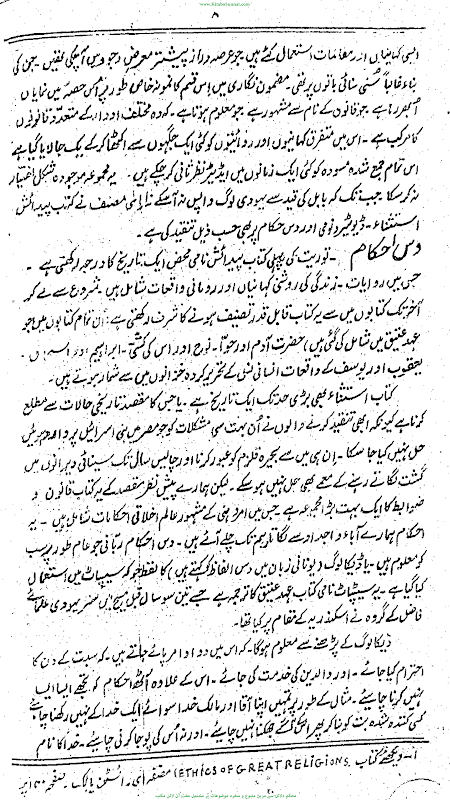 www.KitaboSunnat.com
۸
ایسی کہانیاں اور مقامات استعمال کئے ہیں جو عرصہ دراز پیشتر معرض وجود میں آچکی تھیں۔ جن کی
بناء غالباً سُنی سنائی باتوں پر تھی۔ مضمون نگاری میں اس قسم کا نمونہ خاص طور پر اس حصہ میں نمایاں
ہے جو قانون کے نام سے مشہور ہے جو معلوم ہوتا ہے۔ کہ وہ مختلف ادوار کے متعدد قانونوں
کا مرکب ہے۔ اس میں متفرق کہانیوں اور روائتوں کو کئی ایک جگہوں سے اکٹھا کر کے یک جا لایا گیا ہے
اس تمام جمع شدہ مسودہ کو کئی ایک زمانوں میں ایڈیٹر نظر ثانی کر چکے ہیں۔ یہ مجموعہ موجودہ شکل اختیار
نہ کر سکا جب تک کہ بابل کی قید سے یہودی لوگ واپس نہ آسکے مصنف نے کتب پیدائش
استثناء۔ ڈیوٹیرونومی اور دس احکام پر بھی حسب ذیل تنقید کی ہے۔
دس احکام ۔ توریت کی پہلی کتاب پیدائش نامی محض ایک تاریخ کا درجہ رکھتی ہے۔
جس میں روایات۔ زندگی کی روشنی کہانیاں اور رومانی واقعات شامل ہیں۔ شروع سے لے کر
آخر تک کتابوں میں سے یہ کتاب قابل قدر تصنیف ہونے کا شرف رکھتی ہے۔ ان تمام کتابوں میں جو
عہد عتیق میں شامل کی گئی ہیں، حضرت آدم اور حوا۔ نوح اور اس کی کشتی۔ ابراہیم
یعقوب اور یوسف کے واقعات انسانی نسل کے تحریر کردہ خزانوں میں سے شمار ہوتے ہیں۔
کتاب استثناء بھی بڑی حد تک ایک تاریخ ہے۔ یا جس کا مقصد تاریخی حالات سے مطلع
کرنا ہے کیونکہ ابھی تنقید کرنے والوں نے اُن بہت سی مشکلات کو جو مصر میں بنی اسرائیل پر وارد ہوئیں
حل نہیں کیا جا سکا۔ ان ہی میں سے بحیرہ قلزم کو عبور کرنا اور چالیس سال تک سینائی ویرانوں میں
گشت لگاتے رہنے کے معمے بھی حل نہیں ہو سکے۔ لیکن ہمارے پیش نظر مقصد کے یہ کتاب قانون و
ضوابط کا ایک بہت بڑا مجموعہ ہے جس میں کے مشہور عالم اخلاقی احکامات شامل ہیں۔ یہ
احکام ہمارے آباء و اجداد سے لگاتار ہم تک چلے آئے ہیں۔ دس احکام ربانی جو عام طور پر سب
کو معلوم ہیں۔ یا ڈیکالوگ (یونانی زبان میں دس الفاظ کو کہتے ہیں) کا لفظ جو کہ سیپٹاٹ میں استعمال
کیا گیا ہے۔ یہ سیپٹاٹ نامی کتاب عہد عتیق کا ترجمہ ہے جسے تین سو سال قبل مسیح میں ستر یہودی علمائے
فاضل کے گروہ نے اسکندریہ کے مقام پر کیا تھا۔
ڈیکالوگ کے پڑھنے سے معلوم ہوگا۔ کہ اس میں دو اوامر پائے جاتے ہیں۔ کہ سبت کے دن کا
احترام کیا جائے۔ اور والدین کی خدمت کی جائے۔ اس کے علاوہ آٹھ احکام کو تجھے ایسا ایسا
نہیں کرنا چاہیئے۔ مثال کے طور پر تمہیں اپنا آقا اور مالک خدا سوائے ایک خدا کے نہیں رکھنا چاہئے
کسی کندہ شدہ بت کو بنا کر پھر اس کے آگے جھکنا نہیں چاہیئے۔ اور نہ اُس کی پوجا کرنی چاہیئے۔ خدا کا نام
۱۔ دیکھئے کتاب (ETHICS OF GREAT RELIGIONS) مصنفہ صفحہ پر
محکم دلائل سے مزین متنوع و منفرد موضوعات پر مشتمل مفت آن لائن مکتبہ